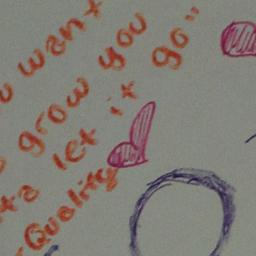 u want
grow you
let it go"
Quality